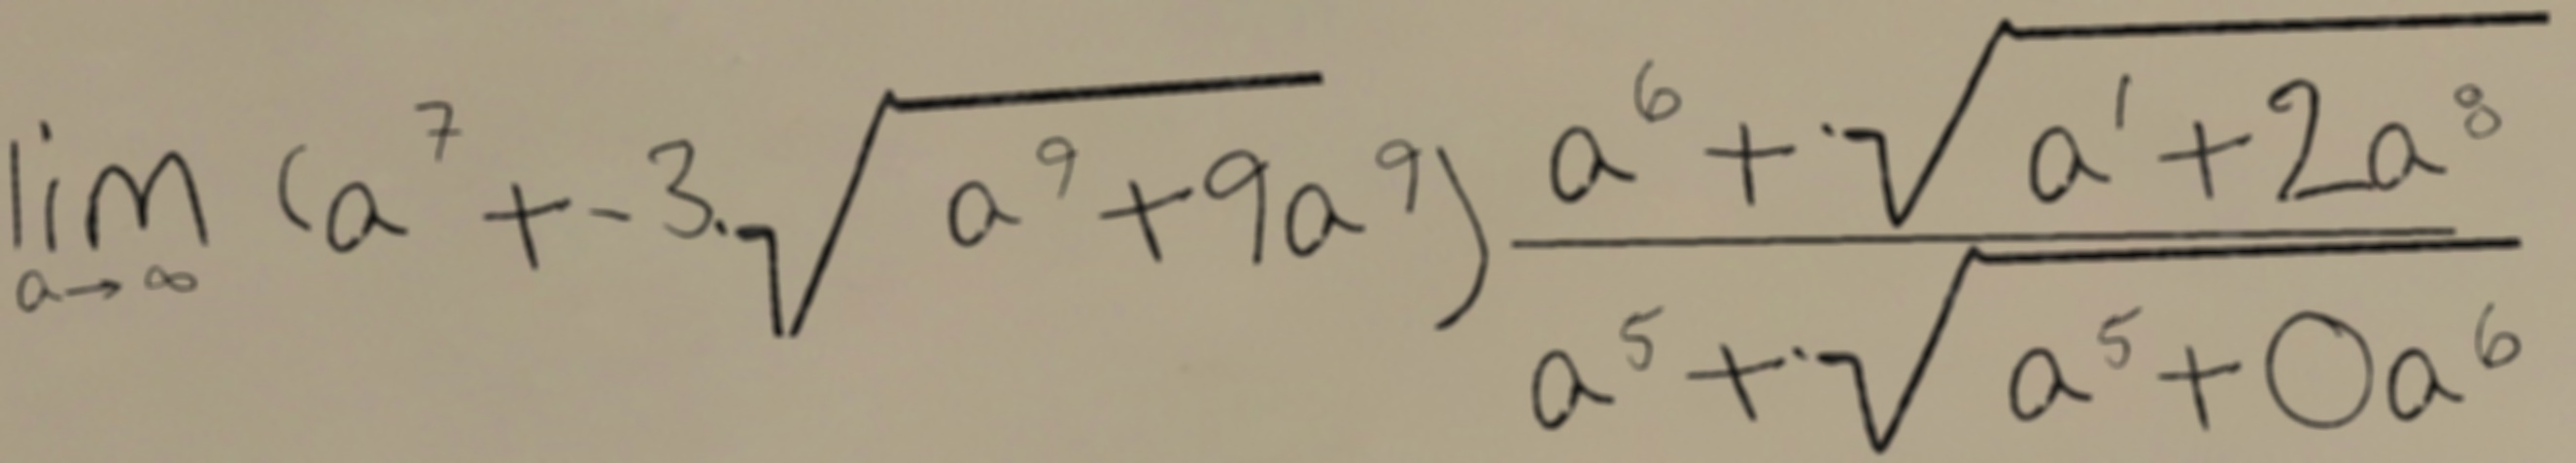 \lim_{a \to \infty} (a^7 + -3 \cdot \sqrt{a^9 + 9a^9}) \frac{a^6 + \sqrt{a^1 + 2a^8}}{a^5 + \sqrt{a^5 + 0a^6}}